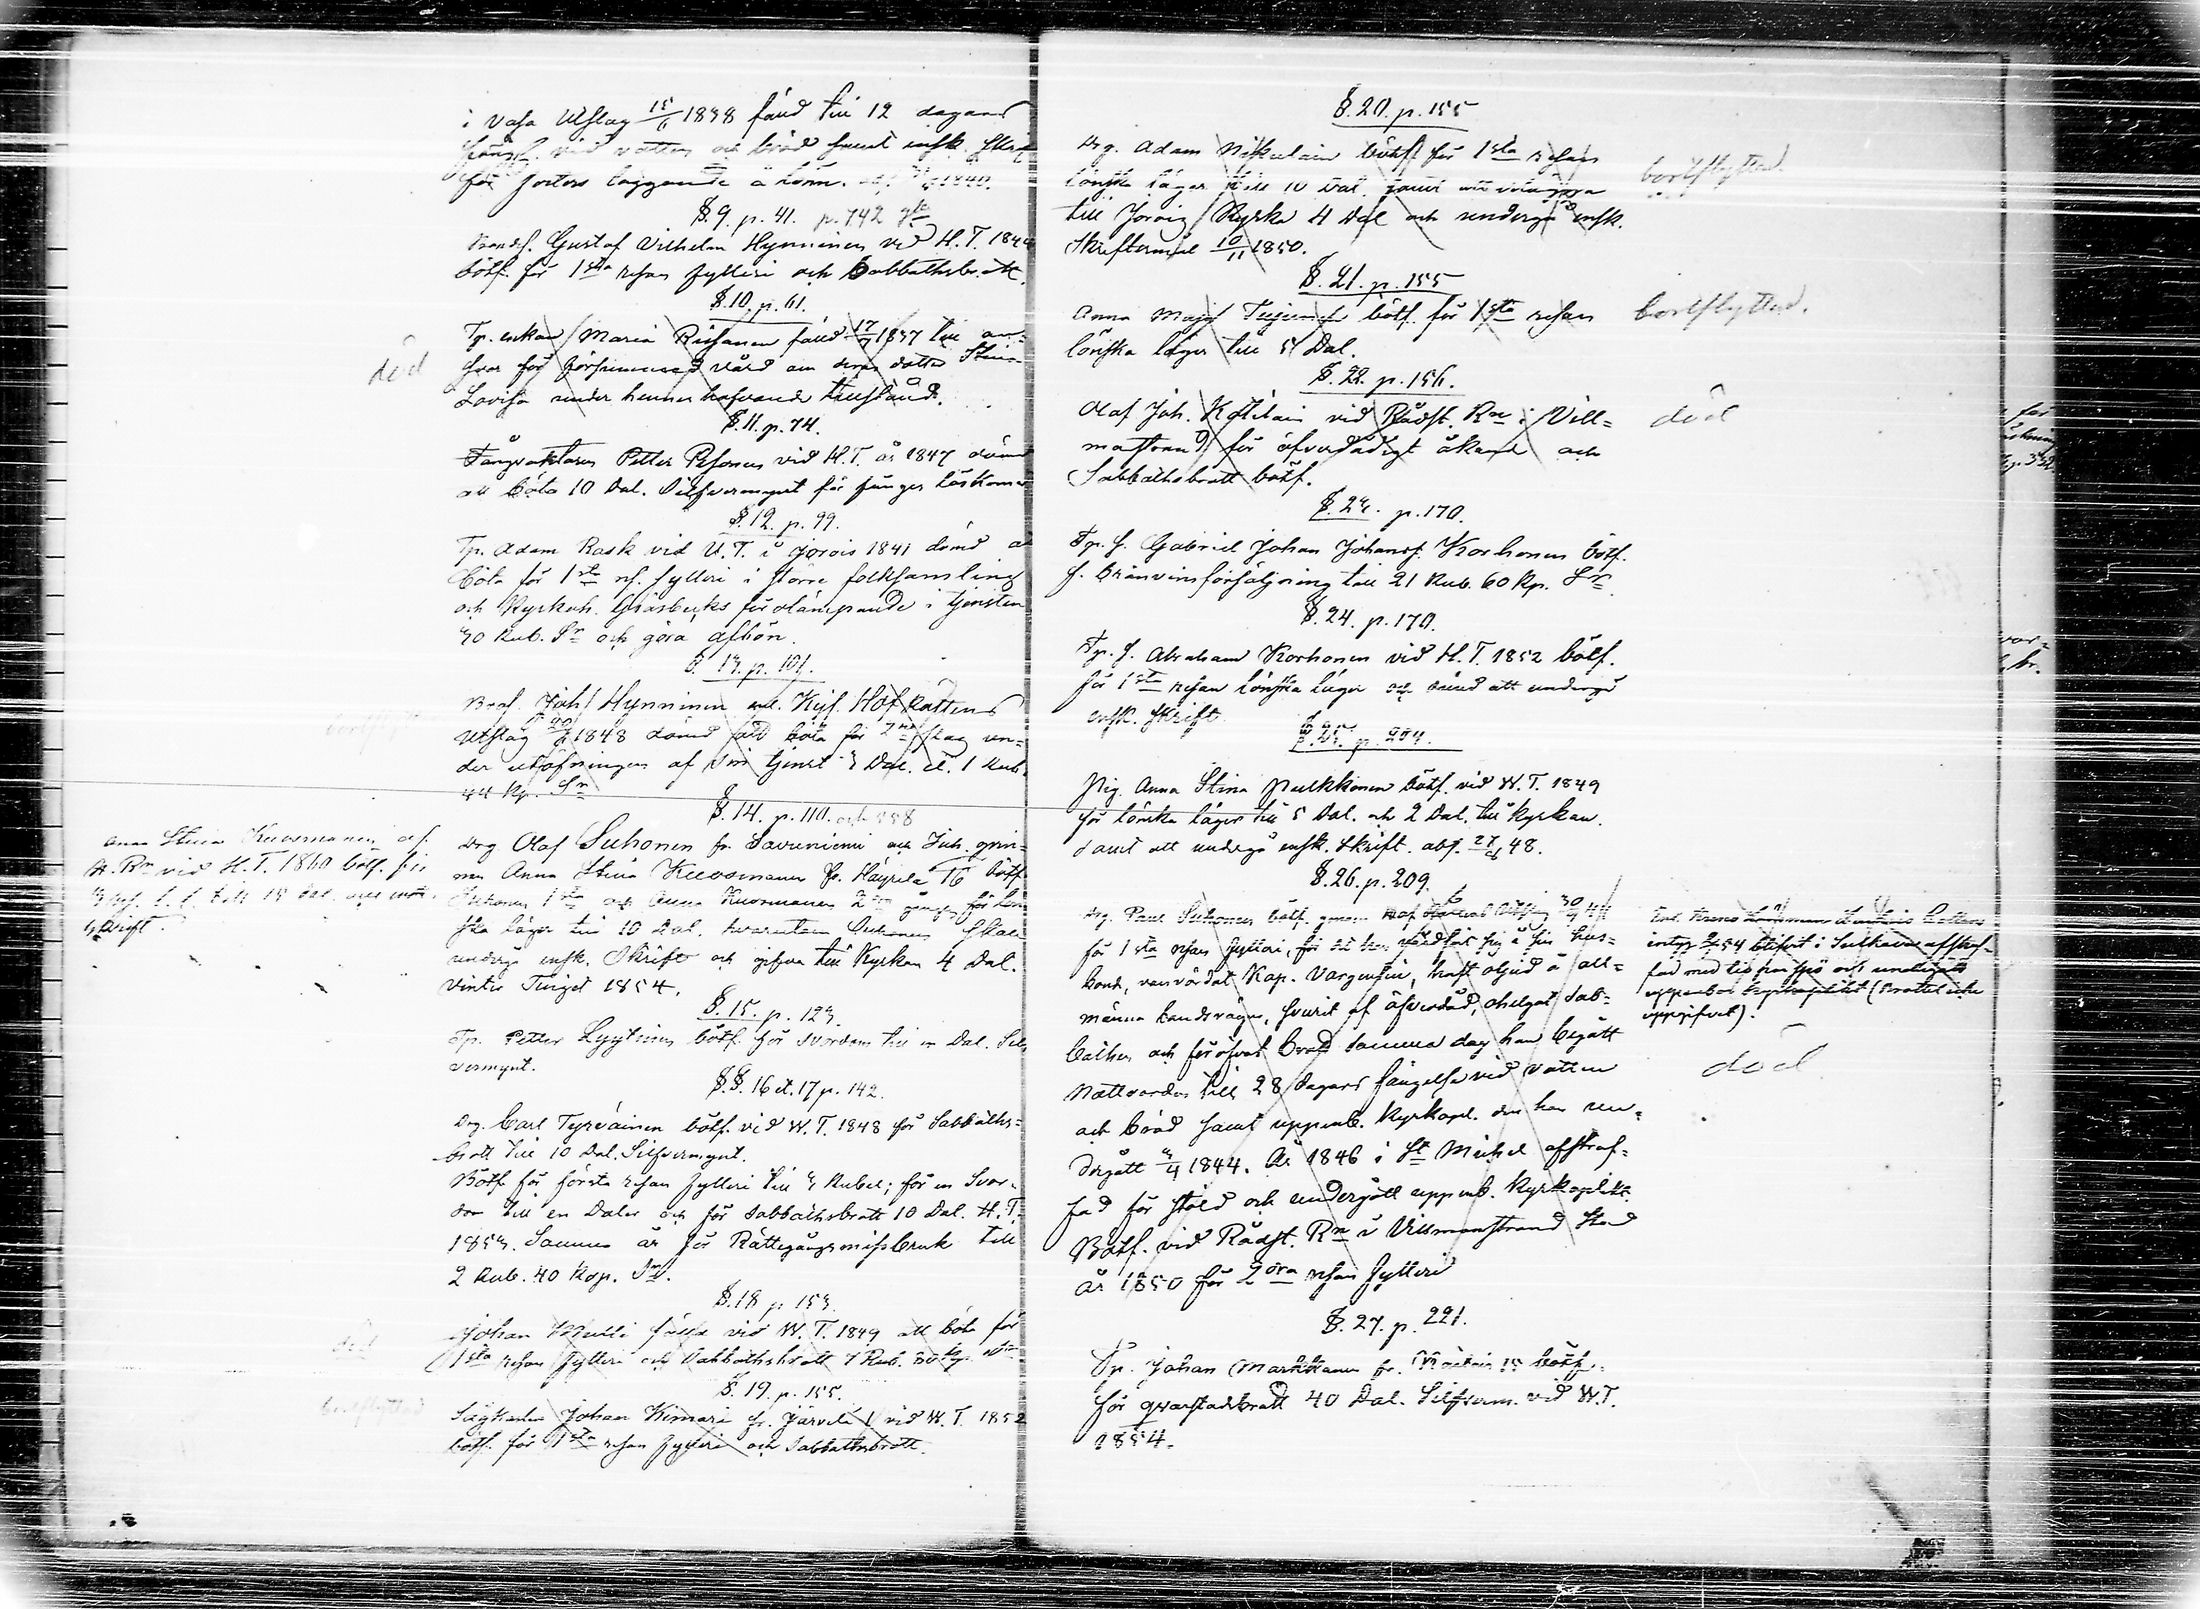 i Vasa Utslag 15/6 1838 fäld till 12 dagars
vid vatten och bröd samt ensk. skrift
för fosters läggande å lönn. 1840.
§. 9. p. 41. p. 742
Gustaf Vilhelm Hynninen vid H.T. 1844
bötf. för 1sta resan fylleri och Sabbathsbrott.
§. 10. p. 61.
död
Tp. enkan Maria Riissanen fäld 17/ 1837 till an=
svar för försummad vård om deras dotter Stina
Lovisa under hennes hafvande tillstånd.
§. 11. p. 74.
Fångvaktaren Petter Pesonen vid H.T. år 1847 dömd
att böta 10 Dal. Silfvermynt för fånges löskomst
§. 12. p. 99.
Tp. Adam Rask vid U.T. i Jorois 1841 dömd att
böta för 1sta res. fylleri i större folksamling
och Kyrkoh. Gråsbecks förolämpande i tjensten
30 Rub. Sr och göra afbön.
§. 13. p. 101.
bortflyttad
Joh. Hynninen enl. Kejs. Hof Rättens
Utslag 1848 dömd att böta för 2ne slag un=
der utöfningen af sin tjenst 3 Dal. el. 1 Rub.
44 Kp. Sr
§. 14. p. 110. och 558
Anna Stina Kuosmanen af
H. Rn vid H.T. 1860 bötf. för
3 res. l. l. till 15 Dal. och ensk.
skrift.
Drg Olof Suhonen fr. Savuniemi och Inh. qvin=
nan Anna Stina Kuosmanen fr. Häyrilä 16 bötf.
Suhonen 1sta och Anna Kuosmanen 2dra gången för lön
ska läger till 10 Dal. hvarutom Suhonen skall
undergå ensk. Skrift och gifva till Kyrkan 4 Dal.
Vinter Tinget 1854.
§. 15. p. 123.
Tp. Petter Lyytinen bötf. för svordom till en Dal. Silf
vermynt.
§.§. 16 et. 17 p. 142.
Drg. Carl Tyrväinen bötf. vid W.T. 1848 för Sabbaths=
brott till 10 Dal. Silfvermynt.
Bötf. för första resan fylleri till 3 Rubel; för en Svor=
dom till en Daler och för Sabbathsbrott 10 Dal. H.T.
1853. Samma år för Rättegångsmissbruk till
2 Rub. 40 Kop. Sr.
§. 18 p. 153.
död
Johan Multi fälld vid W.T. 1849 att böta för
1sta resan fylleri och Sabbathsbrott
§. 19. p. 155.
bortflyttad
Johan Kimari fr. Järvelä 1 vid W.T. 1852
bötf. för 1sta resan fylleri och Sabbathsbrott.
§. 20. p. 155
Drg. Adam Nikulain bötf. för 1sta resan
bortflyttad.
lönska läger till 10 Dal. samt att
till Jorois Kyrka 4 Dal och undergå ensk.
Skriftermål 10/11 1850.
§. 21. p. 155
Anna Maja bötf. för 1sta resan
bortflyttad.
lönska läger till 5 Dal.
§. 22. p. 156.
Olof Joh. Kotilain vid Rådst. Rn i Vill=
död
manstrand för öfverdådigt åkande och
Sabbathsbrott bötf.
§. 23. p. 170.
Tp. S. Gabriel Johan Johanss. Korhonen bötf.
f. bränvinsförsäljning till 21 Rub. 60 Kp. Sr.
§. 24. p. 170.
Tp. S. Abraham Korhonen vid H.T. 1852 bötf.
för 1sta resan lönska läger och dömd att undergå
ensk. skrift.
§. 25. p. 204.
Pig. Anna Stina Pulkkonen bötf. vid W.T. 1849
för lönska läger till 5 Dal. och 2 Dal. till Kyrkan.
samt att undergå ensk. Skrift. abs. 27/ 48.
§. 26. p. 209.
Drg. Paul Suhonen bötf. genom Hof Rättens Utslag 30/ 44
för 1sta resan fylleri, för det han våldfört sig å sin hus=
bond, vanvördat Kap. Vargentin, haft oljud å all=
männa landsvägen, farit af öfverdåd, ohelgat Sab=
bathen och föröfvat brott samma dag han begått
Nattvarden till 28 dagars fängelse vid vatten
och bröd samt uppenb. Kyrkopl. den han un=
dergått 1844. År 1846 i St Michel afstraf=
fad för stöld och undergått uppenb. Kyrkoplikt.
Bötf. vid Rådst. Rn i Villmanstrand Stad
år 1850 för 2dra resan fylleri
intyg 54 blifvit i Sulkava afstraf=
fad med tio par spö och undergått
uppenbar Kyrkoplikt (brottet icke
uppgifvet).
död
§. 27. p. 221.
Tp. Johan Markkanen fr. 15 bötf.
för qvarstadsbrott 40 Dal. Silfverm. vid W.T.
1854.